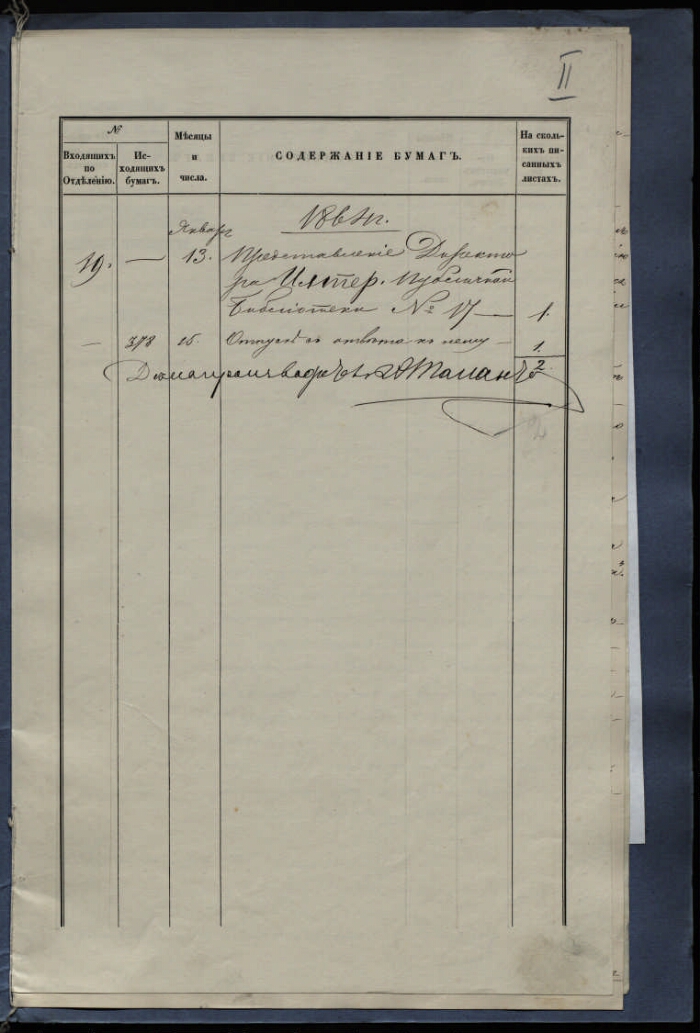 II
№
Входящихъ по Отдѣленію.
Исходящихъ бумагъ.
Мѣсяцы и числа.
СОДЕРЖАНІЕ БУМАГЪ.
На сколькихъ писанныхъ листахъ.
1864 г.
Январь
19. — 13. Представленіе Директо
ра Импер. Публичной
Библіотеки № 17 — 1.
— 378 15. Отпускъ отвѣта къ нему — 1.
2